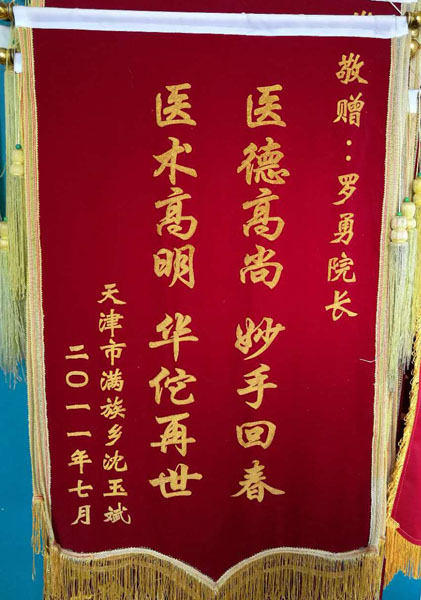 敬赠：罗勇院长
医德高尚 妙手回春
医术高明 华佗再世
天津市满族乡沈玉斌
二〇一一年七月